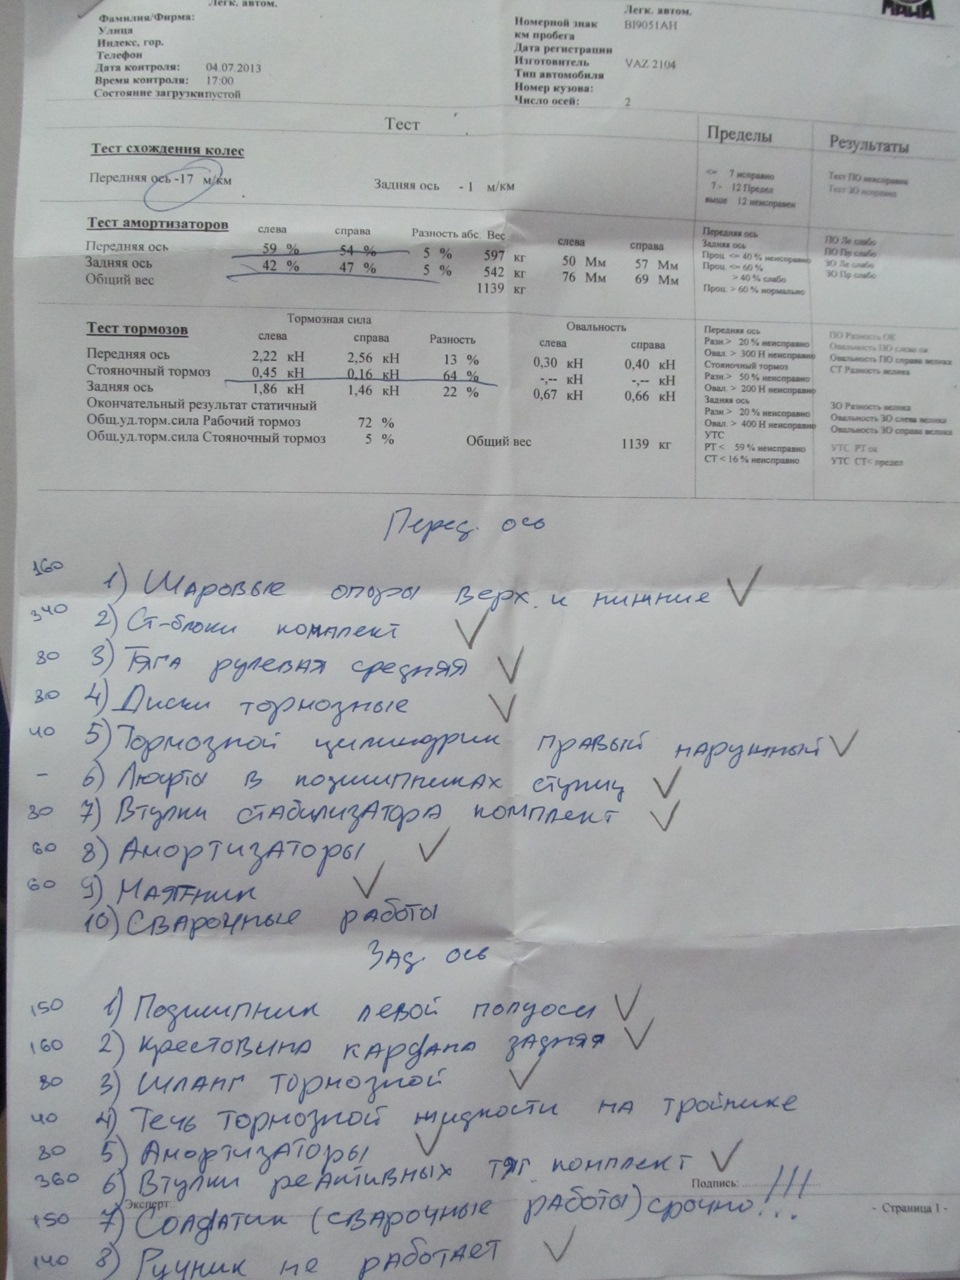 Легк. автом.
Фамилия/Фирма:
Улица
Индекс, гор.
Телефон
Дата контроля: 04.07.2013
Время контроля: 17:00
Состояние загрузки пустой
Легк. автом.
Номерной знак BI9051AH
км пробега
Дата регистрации
Изготовитель VAZ 2104
Тип автомобиля
Номер кузова:
Число осей: 2
МАНА
Тест Пределы Результаты
Тест схождения колес
Передняя ось -17 м/км Задняя ось - 1 м/км
<= 7 исправно Тест ПО неисправен
7 - 12 Предел Тест ЗО исправно
выше 12 неисправен
Тест амортизаторов слева справа Разность абс. Вес слева справа
Передняя ось 59 % 54 % 5 % 597 кг 50 Мм 57 Мм
Задняя ось 42 % 47 % 5 % 542 кг 76 Мм 69 Мм
Общий вес 1139 кг
Передняя ось ПО Ле слабо
Задняя ось ПО Пр слабо
Проц. <= 40 % неисправно ЗО Ле слабо
Проц. <= 60 % ЗО Пр слабо
> 40 % слабо
Проц. > 60 % нормально
Тест тормозов Тормозная сила Овальность
слева справа Разность слева справа
Передняя ось 2,22 кН 2,56 кН 13 % 0,30 кН 0,40 кН
Стояночный тормоз 0,45 кН 0,16 кН 64 % -,-- кН -,-- кН
Задняя ось 1,86 кН 1,46 кН 22 % 0,67 кН 0,66 кН
Окончательный результат статичный
Общ.уд.торм.сила Рабочий тормоз 72 %
Общ.уд.торм.сила Стояночный тормоз 5 % Общий вес 1139 кг
Передняя ось ПО Разность ОК
Разн.> 20 % неисправно Овальность ПО слева ок
Овал. > 300 Н неисправно Овальность ПО справа велика
Стояночный тормоз СТ Разность велика
Разн.> 50 % неисправно
Овал. > 200 Н неисправно
Задняя ось ЗО Разность велика
Разн.> 20 % неисправно Овальность ЗО слева велика
Овал. > 400 Н неисправно Овальность ЗО справа велика
УТС
РТ < 59 % неисправно УТС РТ ок
СТ < 16 % неисправно УТС СТ< предел
Перед. ось
160 1) Шаровые опоры верх. и нижние ✓
340 2) Ст-блоки комплект ✓
80 3) Тяга рулевая средняя ✓
80 4) Диски тормозные ✓
40 5) Тормозной цилиндрик правый наружный ✓
- 6) Люфты в подшипниках ступиц ✓
80 7) Втулки стабилизатора комплект ✓
60 8) Амортизаторы ✓
60 9) Маятник ✓
10) Сварочные работы
Зад. ось
150 1) Подшипник левой полуоси ✓
160 2) Крестовина кардана задняя ✓
80 3) Шланг тормозной ✓
40 4) Течь тормозной жидкости на тройнике
80 5) Амортизаторы ✓
360 6) Втулки реактивных тяг комплект ✓
Подпись:
Эксперт
150 7) Солдатик (сварочные работы) срочно!!!
- Страница 1 -
140 8) Ручник не работает ✓